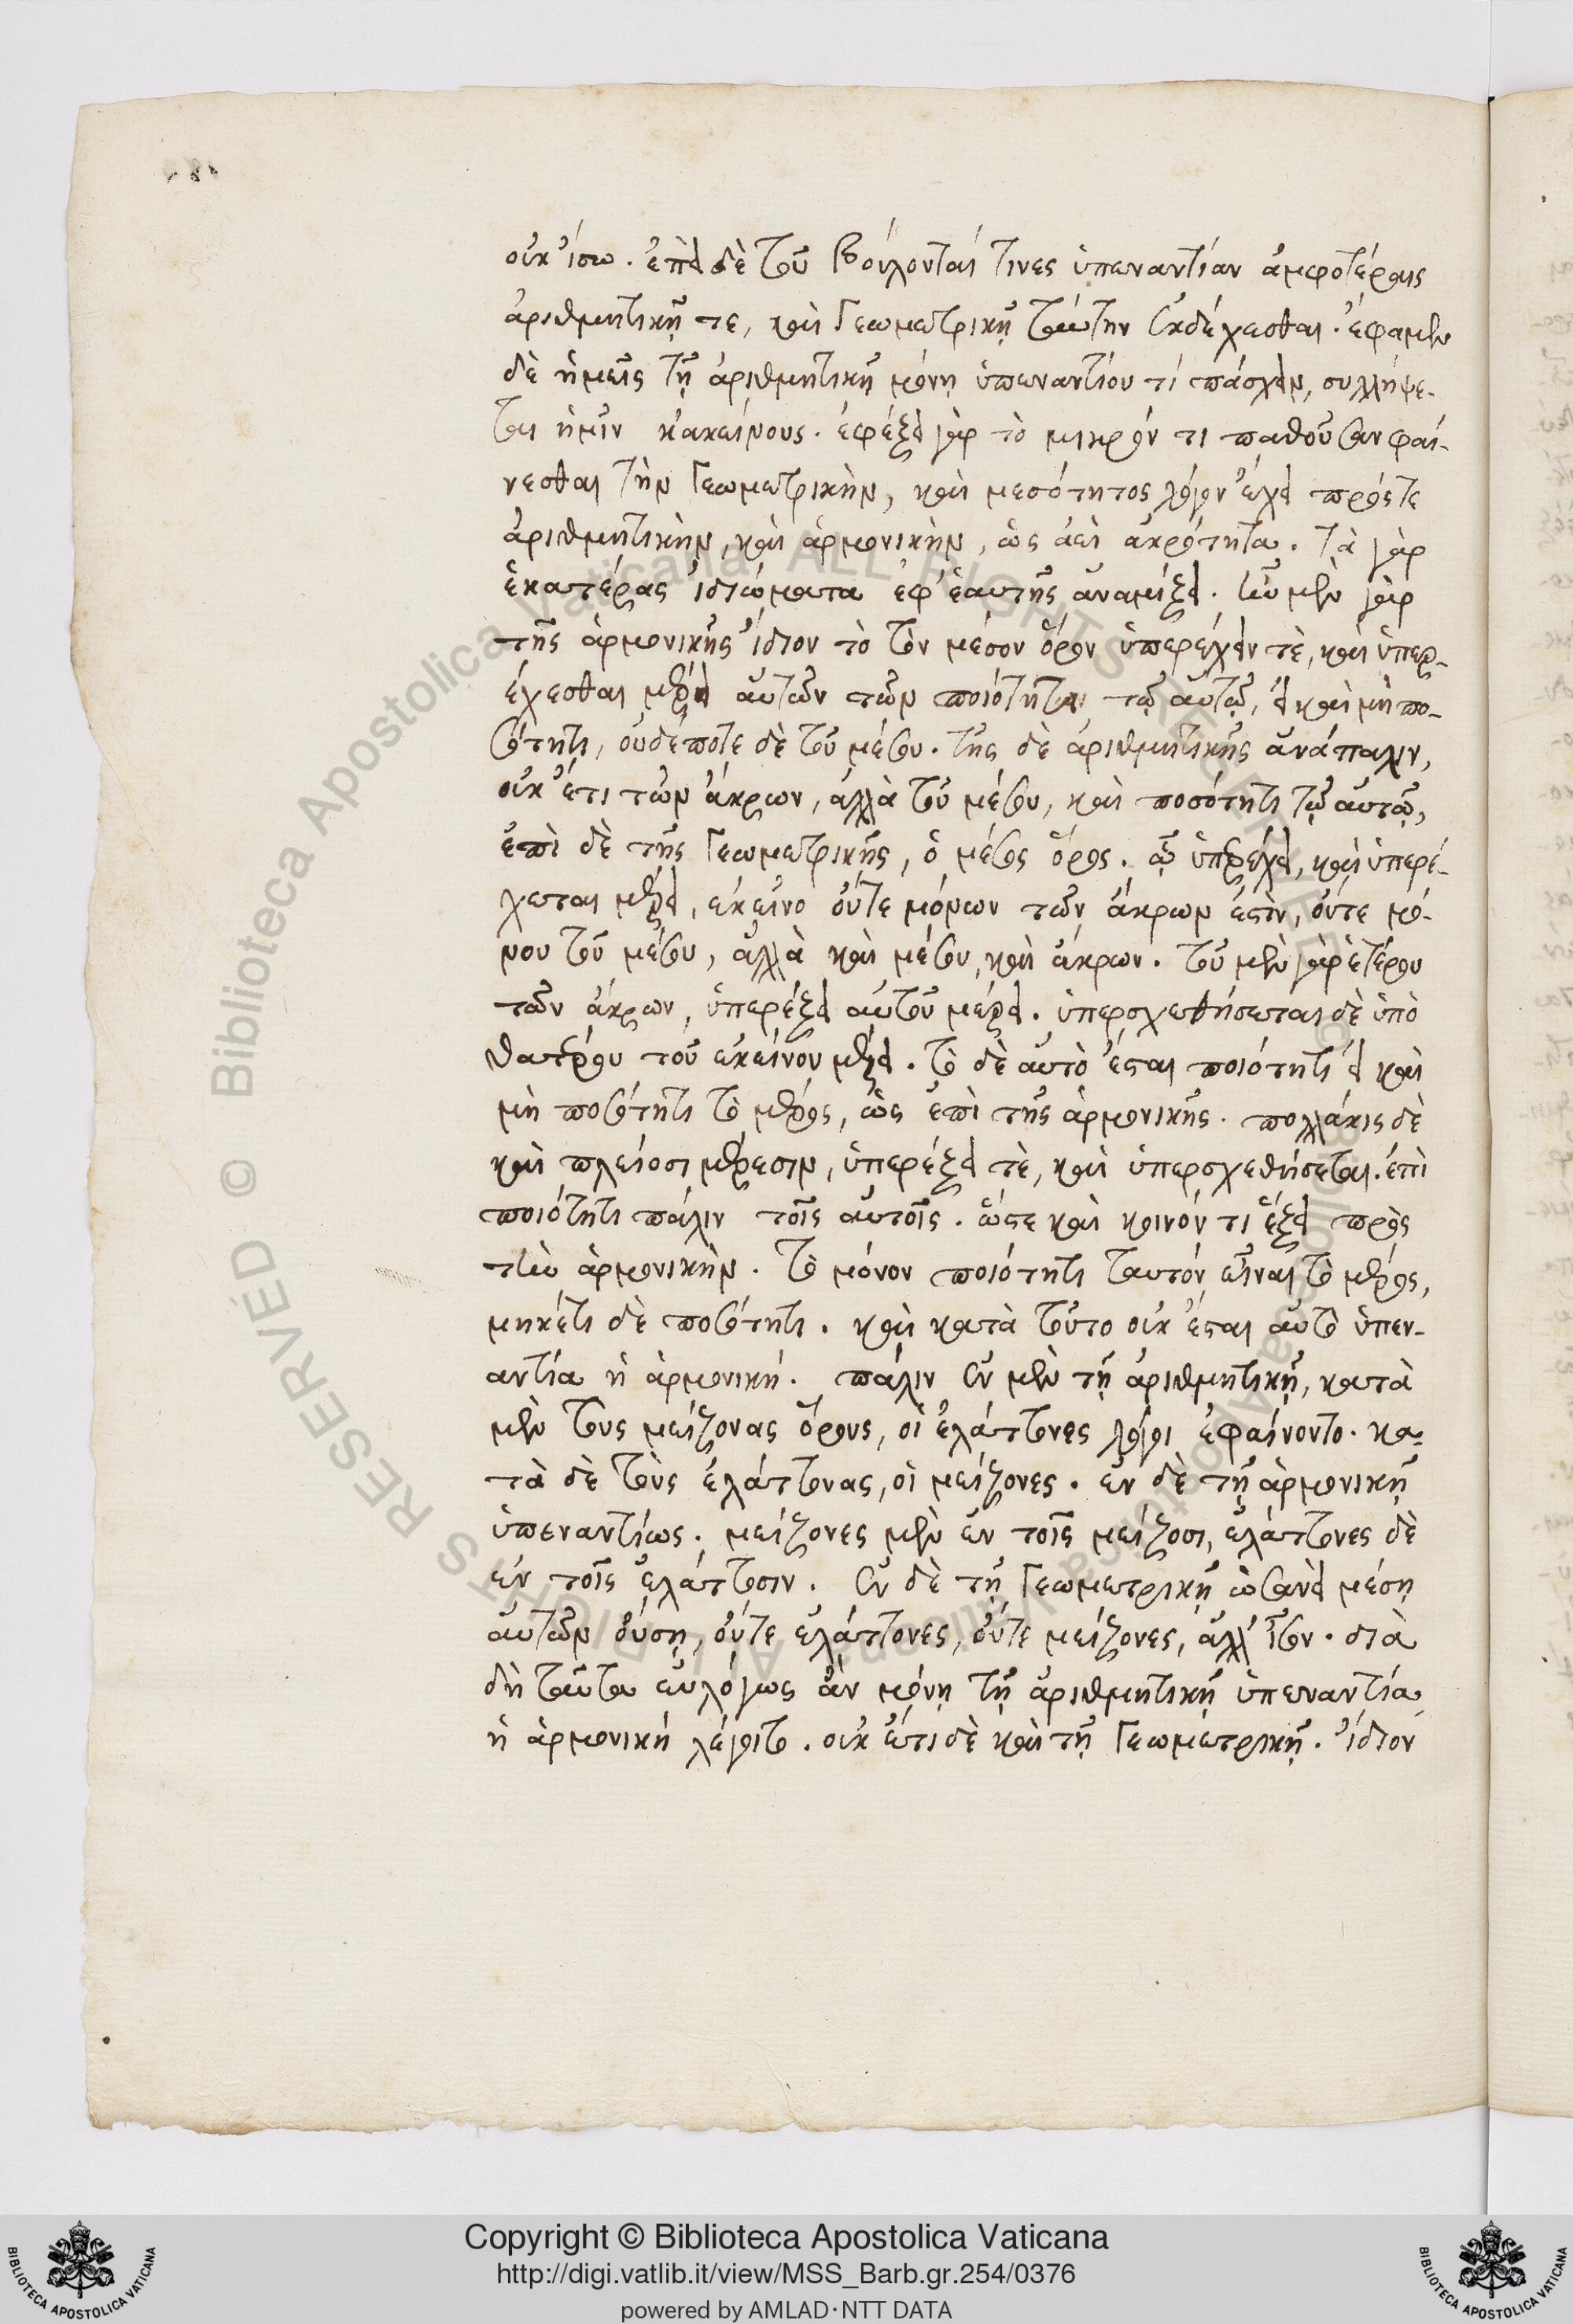 οὐκ ἴσω. ἐπεὶ δὲ τοῦ βούλονταί τινες ὑπεναντίαν ἀμφοτέραις
ἀριθμητικῇ τε, καὶ Γεωμετρικῇ ταύτην ἐκδέχεσθαι. ἔφαμεν
δὲ ἡμεῖς τῇ ἀριθμητικῇ μόνῃ ὑπεναντίον τί πάσχειν, συλλήψε-
ται ἡμῖν κἀκείνους. ἐφέξει γὰρ τὸ μικρόν τι παθοῦσαν φαί-
νεσθαι τὴν Γεωμετρικὴν, καὶ μεσότητος λόγον ἔχει πρός τε
ἀριθμητικὴν, καὶ ἁρμονικὴν, ὡς ἀεὶ ἀκρότητα. τὰ γὰρ
ἑκατέρας ἰδιώματα ἐφ' ἑαυτῆς ἀναμίξει. ἦν μὲν γὰρ
τῆς ἁρμονικῆς ἴδιον τὸ τὸν μέσον ὅρον ὑπερέχειν τὲ, καὶ ὑπερ-
έχεσθαι μέρει αὐτῶν τῶν ποιότητι τῷ αὐτῷ, εἰ καὶ μὴ πο-
σότητι, οὐδέποτε δὲ τοῦ μέσου. τῆς δὲ ἀριθμητικῆς ἀνάπαλιν,
οὐκ έτι τῶν ἄκρων, ἀλλὰ τοῦ μέσου, καὶ ποσότητι τῷ αὐτῷ,
ἐπὶ δὲ τῆς Γεωμετρικῆς, ὁ μέσος ὅρος. ᾧ ὑπερέχει, καὶ ὑπερέ-
χεται μέρει, ἐκεῖνο οὔτε μόνων τῶν ἄκρων ἐστὶν, οὔτε μό-
νου τοῦ μέσου, ἀλλὰ καὶ μέσου, καὶ ἄκρων. τοῦ μὲν γὰρ ἑτέρου
τῶν ἄκρων, ὑπερέξει αὐτοῦ μέρει. ὑπερσχεθήσεται δὲ ὑπὸ
θατέρου τοῦ ἐκείνου μέρει. τὸ δὲ αὐτὸ ἔσται ποιότητι εἰ καὶ
μὴ ποσότητι τὸ μέρος, ὡς ἐπὶ τῆς ἁρμονικῆς. πολλάκις δὲ
καὶ πλείοσι μέρεσιν, ὑπερέξει τὲ, καὶ ὑπερσχεθήσεται. ἐπὶ
ποιότητι πάλιν τοῖς αὐτοῖς. ὥστε καὶ κοινόν τι ἕξει πρὸς
τὴν ἁρμονικὴν. τὸ μόνον ποιότητι ταυτόν εἶναι τὸ μέρος,
μηκέτι δὲ ποσότητι. καὶ κατὰ τοῦτο οὐκ ἔσται αὐτὸ ὑπεν-
αντία ἡ ἁρμονική. πάλιν ἐν μὲν τῇ ἀριθμητικῇ, κατὰ
μὲν τοὺς μείζονας ὅρους, οἱ ἐλάττονες λόγοι ἐφαίνοντο. κα-
τὰ δὲ τοὺς ἐλάττονας, οἱ μείζονες. ἐν δὲ τῇ ἁρμονικῇ
ὑπεναντίως. μείζονες μὲν ἐν τοῖς μείζοσι, ἐλάττονες δὲ
ἐν τοῖς ἐλάττοσιν. ἐν δὲ τῇ Γεωμετρικῇ ὡσανεὶ μέσῃ
αὐτῶν οὔσῃ, οὔτε ἐλάττονες, οὔτε μείζονες, ἀλλ' ἴσον. διὰ
δὴ ταῦτα εὐλόγως ἂν μόνῃ τῇ ἀριθμητικῇ ὑπεναντία
ἡ ἁρμονική λέγοιτο. οὐκ έτι δὲ καὶ τῇ Γεωμετρικῇ. ἴδιον
Copyright © Biblioteca Apostolica Vaticana
http://digi.vatlib.it/view/MSS_Barb.gr.254/0376
powered by AMLAD·NTT DATA